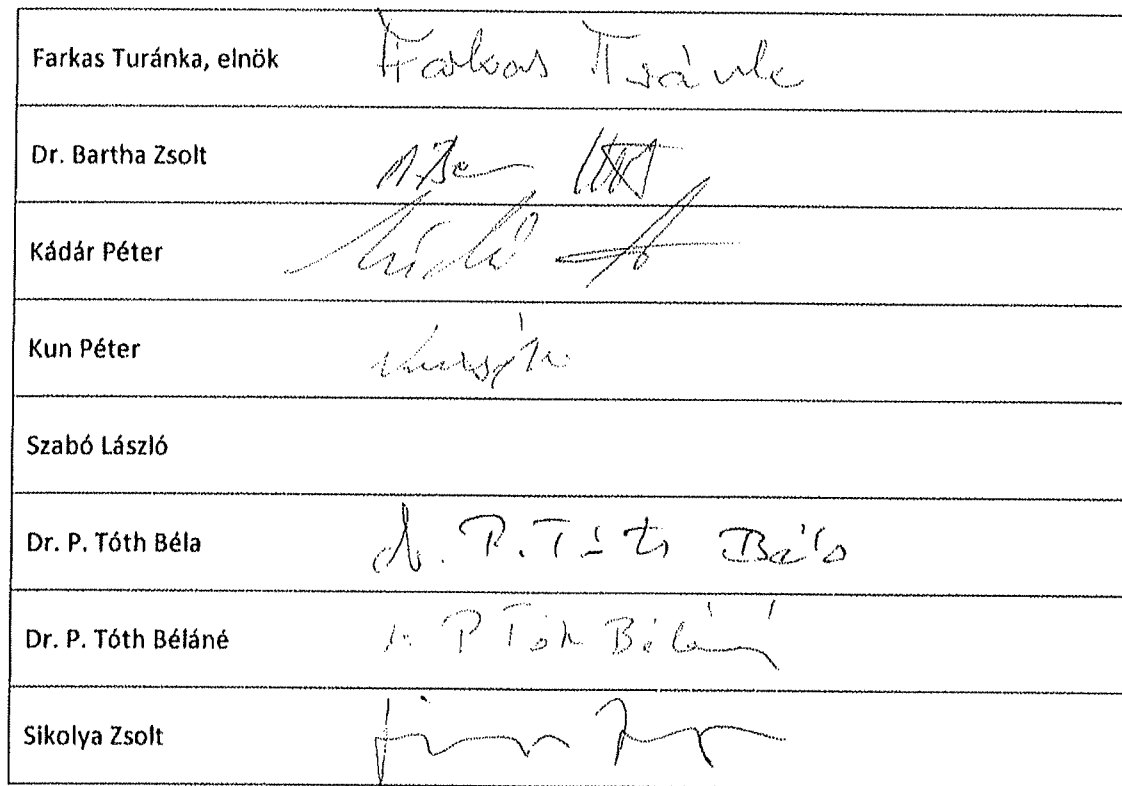 Farkas Turánka, elnök Farkas
Dr. Bartha Zsolt
Kádár Péter
Kun Péter
Szabó László
Dr. P. Tóth Béla dr. P. Tóth Béla
Dr. P. Tóth Béláné dr. P Tóth Béláné
Sikolya Zsolt